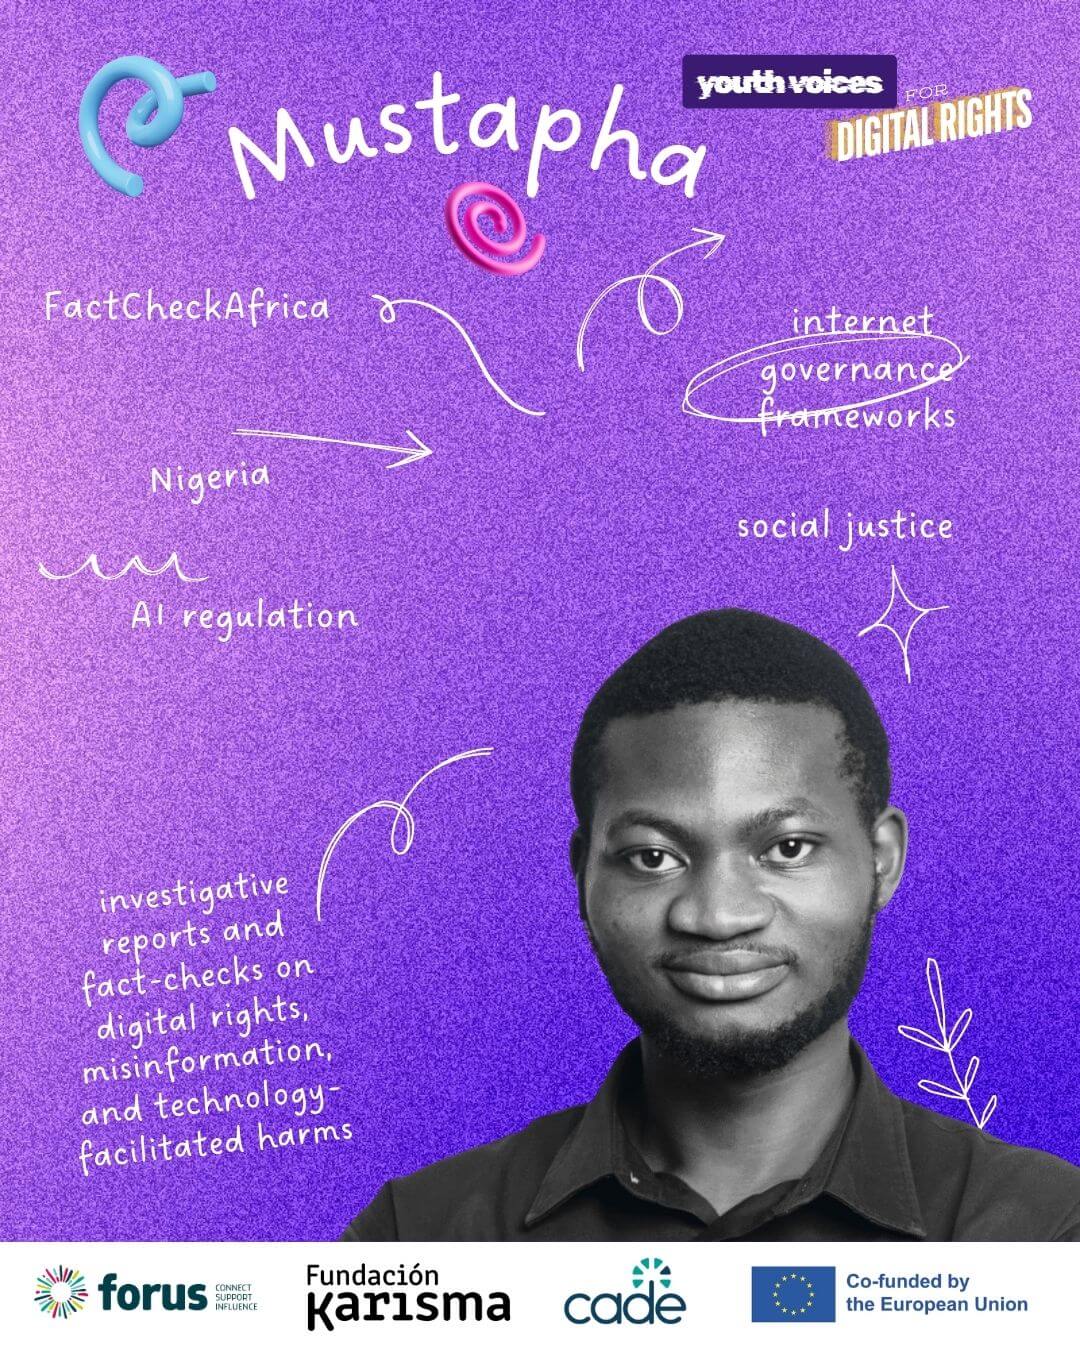 Mustapha
youth voices
FOR
DIGITAL RIGHTS
FactCheckAfrica
internet
governance
frameworks
Nigeria
social justice
AI regulation
investigative
reports and
fact-checks on
digital rights,
misinformation,
and technology-
facilitated harms
forus
CONNECT
SUPPORT
INFLUENCE
Fundación
Karisma
cade
Co-funded by
the European Union